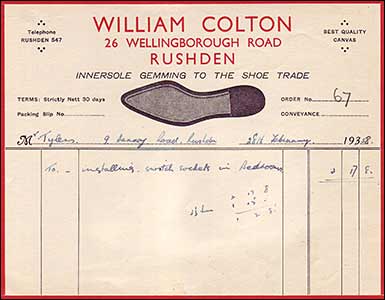 Telephone
RUSHDEN 547
WILLIAM COLTON
BEST QUALITY
CANVAS
26 WELLINGBOROUGH ROAD
RUSHDEN
INNERSOLE GEMMING TO THE SHOE TRADE
TERMS: Strictly Nett 30 days
ORDER No. 67
Packing Slip No.
CONVEYANCE
Mr Tylers, 9 Road, Rushden 28th February 1938
To - installing switch sockets in Bedroom 2 17 8